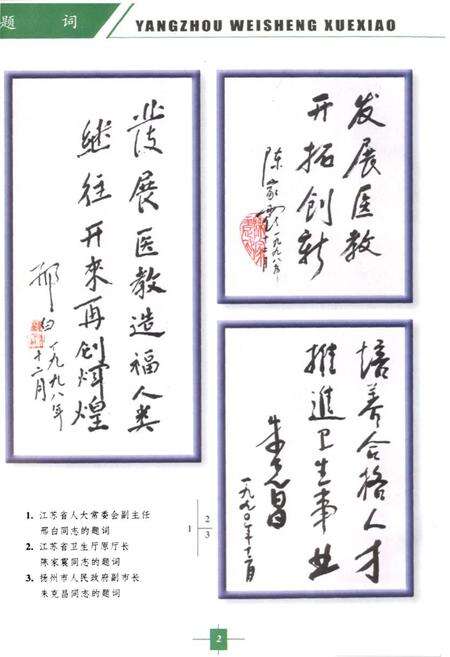 题 词
YANGZHOU WEISHENG XUEXIAO
發展医教造福人类
继往开来再创辉煌
邢白
一九九八年
十二月
发展医教
开拓创新
陈家震
一九九八年
培养合格人才
推進卫生事业
朱克昌
一九九〇年十二月
1. 江苏省人大常委会副主任
邢白同志的题词
2. 江苏省卫生厅原厅长
陈家震同志的题词
3. 扬州市人民政府副市长
朱克昌同志的题词
1
2
3
2